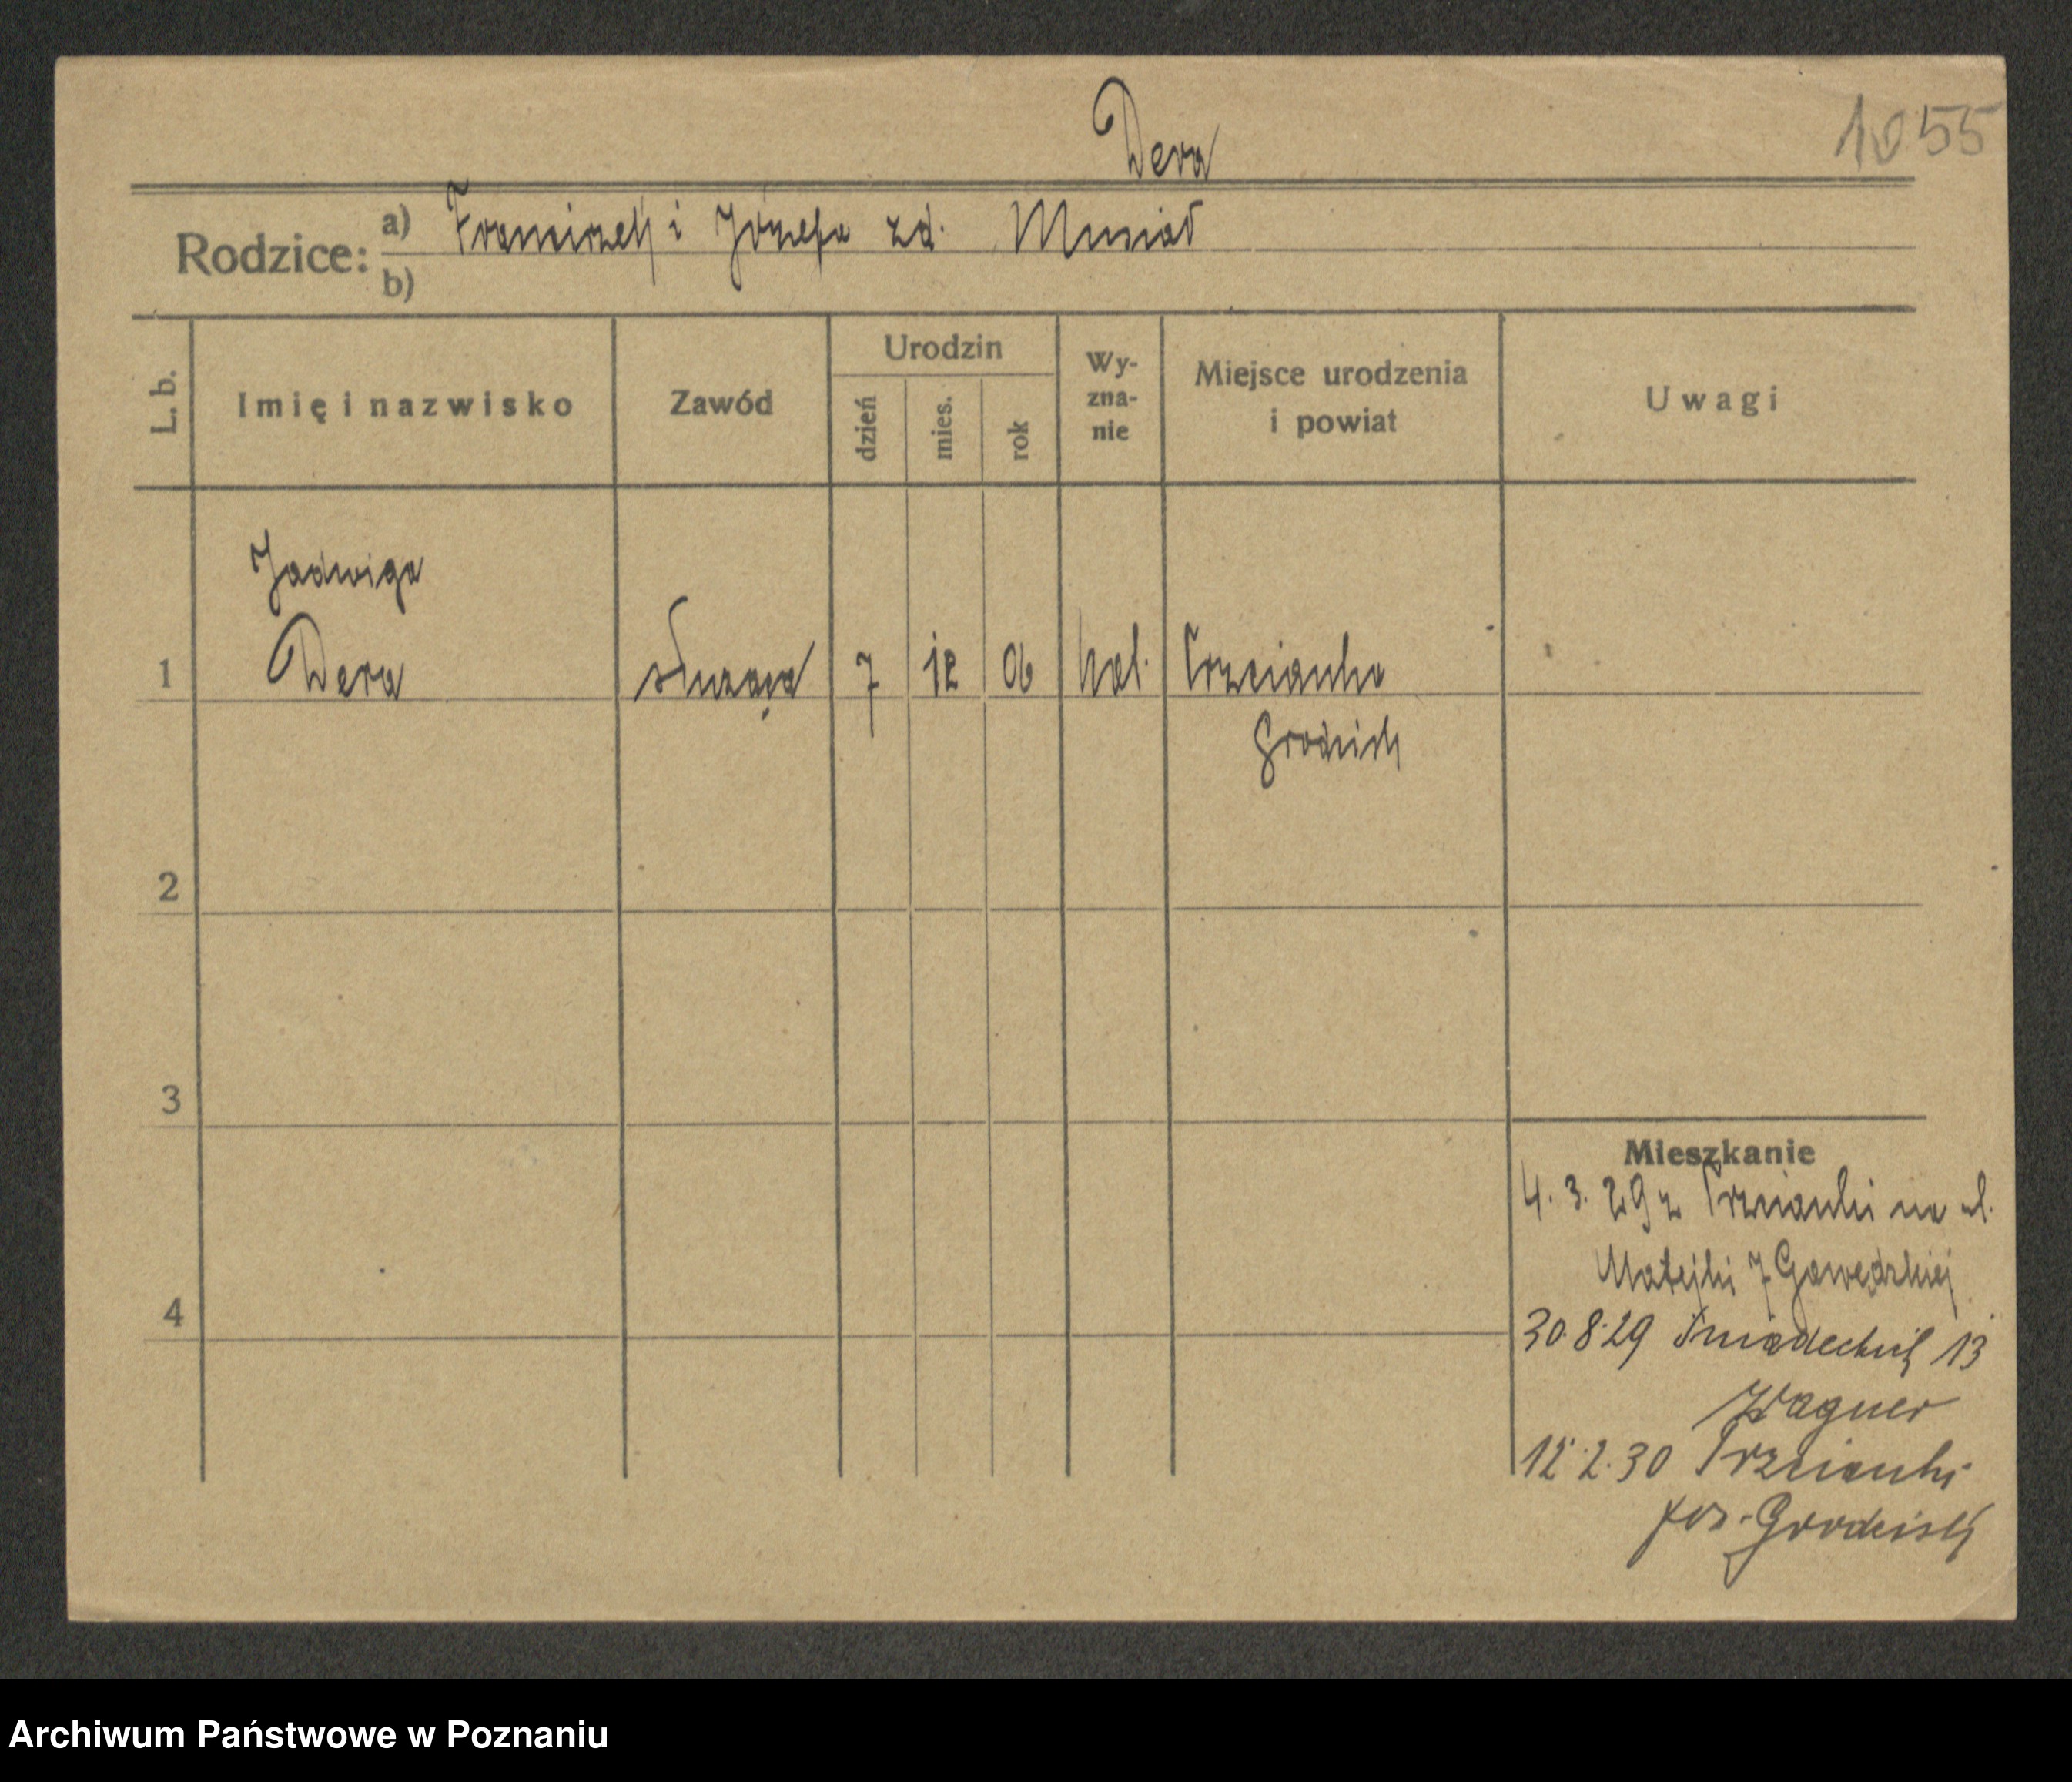 Dera
1055
Rodzice: a) Franciszek i Józefa zd. Musiał
b)
L. b.
Imię i nazwisko
Zawód
Urodzin
dzień
mies.
rok
Wy-
zna-
nie
Miejsce urodzenia
i powiat
Uwagi
Jadwiga
1 Dera służąca 7 12 06 kat. Trzcianka
Grodzisk
2
3
4
Mieszkanie
4. 3. 29 z Trzcianki na ul.
Matejki 7 Gawędzkiej
30.8.29 Śniadeckich 13
Wagner
12.2.30 Trzcianki
pow. Grodzisk
Archiwum Państwowe w Poznaniu